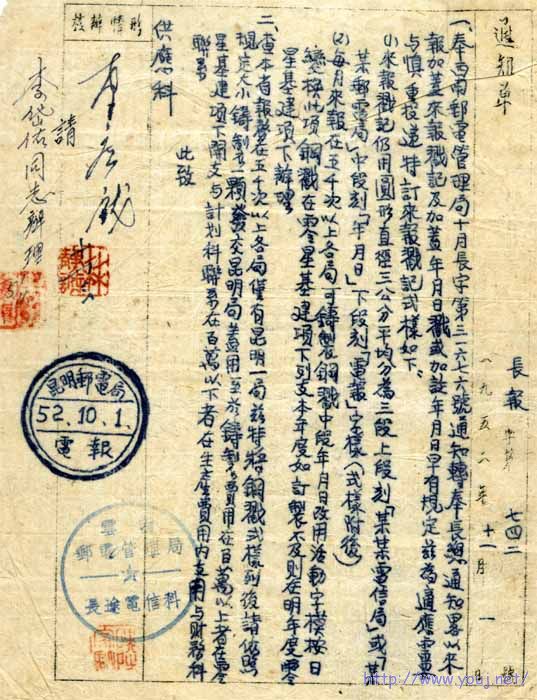 通知單
長報 字第 七四二 號
一九五二年十一月一日
一、奉西南郵電管理局十月長字第三一六七六號通知轉奉長無通知畧以來
報加蓋來報戳記及加蓋年月日戳或加註年月日早有規定茲為適應電報
与慎重投遞特訂來報戳記式樣如下:
⑴來報戳記仍用圓形直徑三公分平均分為三段上段刻「某某電信局」或「某
某郵電局」中段刻「年月日」下段刻「電報」字樣(式樣附後)
⑵每月來報在五千次以上各局可鑄製鋼戳中段年月日改用活動字模按日
變換此項鋼戳在零星基建項下列支本年度如訂製不及則在明年度零
星基建項下辦理
二、查本省報務在五千次以上各局僅有昆明一局茲特將鋼戳式樣列後請依照
規定大小鑄制一顆發交昆明局蓋用至於鑄制費用在百萬以上者在零
星基建項下開支与計劃科聯系在百萬以下者在生產費用內支用与財務科
聯系
此致
供應科
擬辦情形
請
李岱佑同志辦理
昆明郵電局
52.10.1.
電報
雲南
郵電管理局
長途電信科
http://www.youj.net/